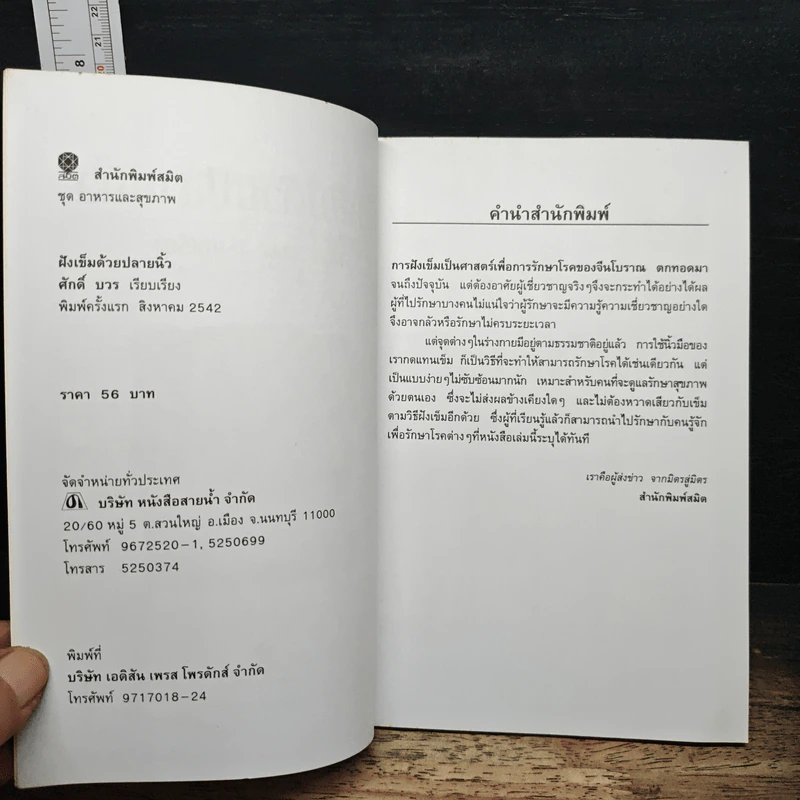 สำนักพิมพ์สมิต
ชุด อาหารและสุขภาพ
ฝังเข็มด้วยปลายนิ้ว
ศักดิ์ บวร เรียบเรียง
พิมพ์ครั้งแรก สิงหาคม 2542
ราคา 56 บาท
จัดจำหน่ายทั่วประเทศ
บริษัท หนังสือสายน้ำ จำกัด
20/60 หมู่ 5 ต.สวนใหญ่ อ.เมือง จ.นนทบุรี 11000
โทรศัพท์ 9672520-1, 5250699
โทรสาร 5250374
พิมพ์ที่
บริษัท เอดิสัน เพรส โพรดักส์ จำกัด
โทรศัพท์ 9717018-24
คำนำสำนักพิมพ์
การฝังเข็มเป็นศาสตร์เพื่อการรักษาโรคของจีนโบราณ ตกทอดมา
จนถึงปัจจุบัน แต่ต้องอาศัยผู้เชี่ยวชาญจริงๆจึงจะกระทำได้อย่างได้ผล
ผู้ที่ไปรักษาบางคนไม่แน่ใจว่าผู้รักษาจะมีความรู้ความเชี่ยวชาญอย่างใด
จึงอาจกลัวหรือรักษาไม่ครบระยะเวลา
แต่จุดต่างๆในร่างกายมีอยู่ตามธรรมชาติอยู่แล้ว การใช้นิ้วมือของ
เรากดแทนเข็ม ก็เป็นวิธีที่จะทำให้สามารถรักษาโรคได้เช่นเดียวกัน แต่
เป็นแบบง่ายๆไม่ซับซ้อนมากนัก เหมาะสำหรับคนที่จะดูแลรักษาสุขภาพ
ด้วยตนเอง ซึ่งจะไม่ส่งผลข้างเคียงใดๆ และไม่ต้องหวาดเสียวกับเข็ม
ตามวิธีฝังเข็มอีกด้วย ซึ่งผู้ที่เรียนรู้แล้วก็สามารถนำไปรักษากับคนรู้จัก
เพื่อรักษาโรคต่างๆที่หนังสือเล่มนี้ระบุได้ทันที
เราคือผู้ส่งข่าว จากมิตรสู่มิตร
สำนักพิมพ์สมิต
8
22
21
20